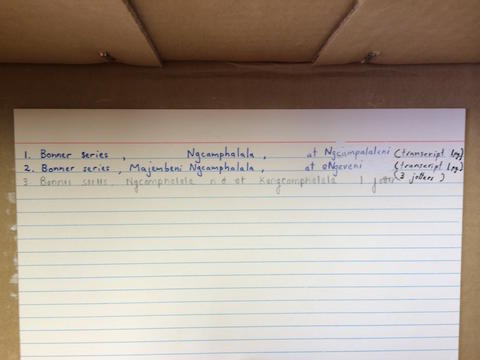 1. Bonner series, Ngcamphalala, at Ngcampalaleni (transcript
2. Bonner series, Majembeni Ngcamphalala, at eNgeveni (transcript
3 Bonner series, Ngcamphalala n d at Kangcamphalala 1 (3 jotters)